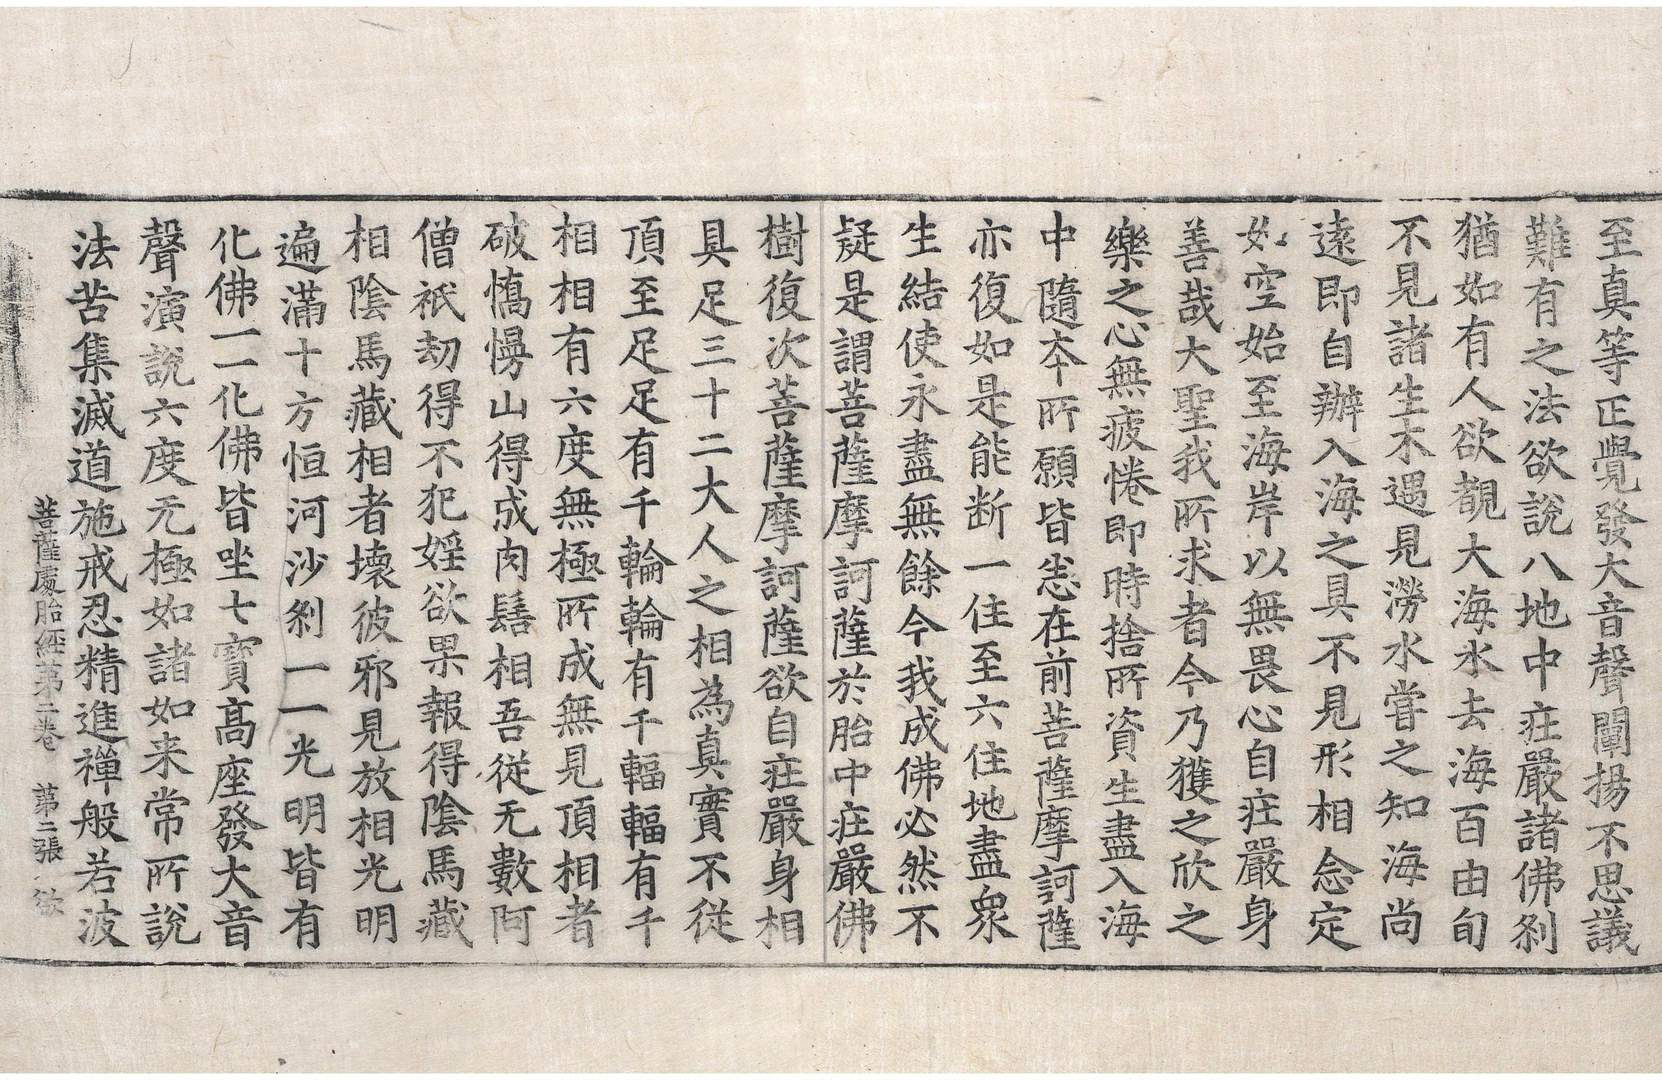 至真等正覺發大音聲闡揚不思議
難有之法欲說八地中庄嚴諸佛剎
猶如有人欲覩大海水去海百由旬
不見諸生木遇見澇水甞之知海尚
遠即自辦入海之具不見形相念定
如空始至海岸以無畏心自庄嚴身
善哉大聖我所求者今乃獲之欣之
樂之心無疲惓即時捨所資生盡入海
中隨夲所願皆悉在前菩薩摩訶薩
亦復如是能断一住至六住地盡衆
生結使永盡無餘今我成佛必然不
疑是謂菩薩摩訶薩於胎中庄嚴佛
樹復次菩薩摩訶薩欲自庄嚴身相
具足三十二大人之相為真實不從
頂至足足有千輪輪有千輻輻有千
相相有六度無極所成無見頂相者
破憍慢山得成肉髻相吾従无數阿
僧祇劫得不犯婬欲果報得陰馬藏
相陰馬藏相者壞彼邪見放相光明
遍滿十方恒河沙剎一一光明皆有
化佛一一化佛皆坐七寶髙座發大音
聲演說六度无極如諸如来常所說
法苦集滅道施戒忍精進禪般若波
菩薩處胎經苐二卷 苐二張 欲